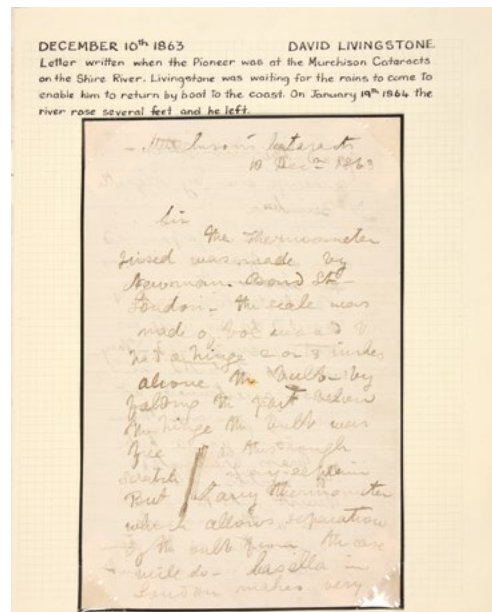 DECEMBER 10th 1863 DAVID LIVINGSTONE
Letter written when the Pioneer was at the Murchison Cataracts
on the Shire River. Livingstone was waiting for the rains to come to
enable him to return by boat to the coast. On January 19th 1864 the
river rose several feet and he left.
Cataracts
10 Decm 1863
Sir
The Thermometer
used was made by
Newman. Bond St
London - The scale was
made of and
a hinge 2 or 3 inches
above the bulb - by
the part below
the hinge the bulb was
free this rough
scratch may explain
But any Thermometer
which allows separation
of the bulb from the case
will do - Casella in
London makes very